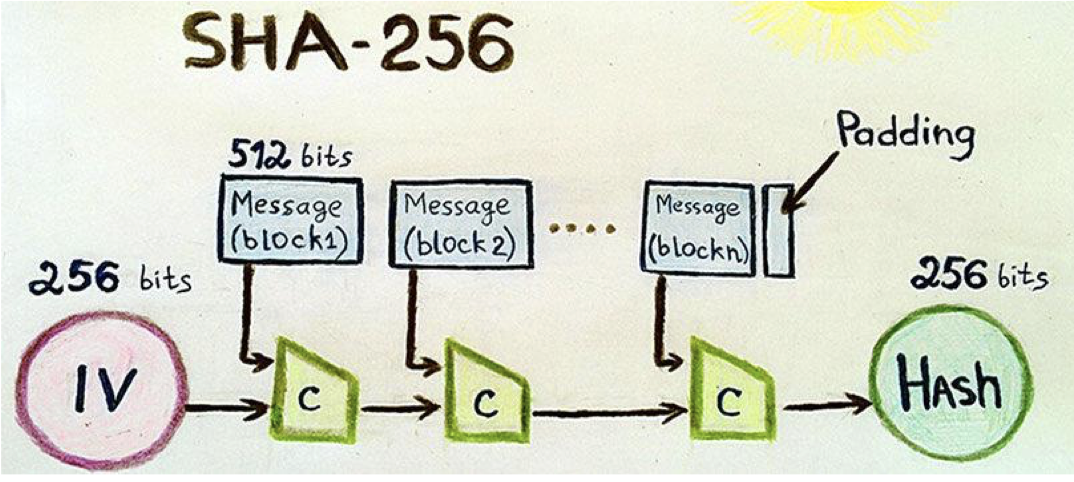 SHA-256
512 bits
Padding
Message
(block1)
Message
(block2)
Message
(blockn)
256 bits
256 bits
IV
C
C
C
HAsh